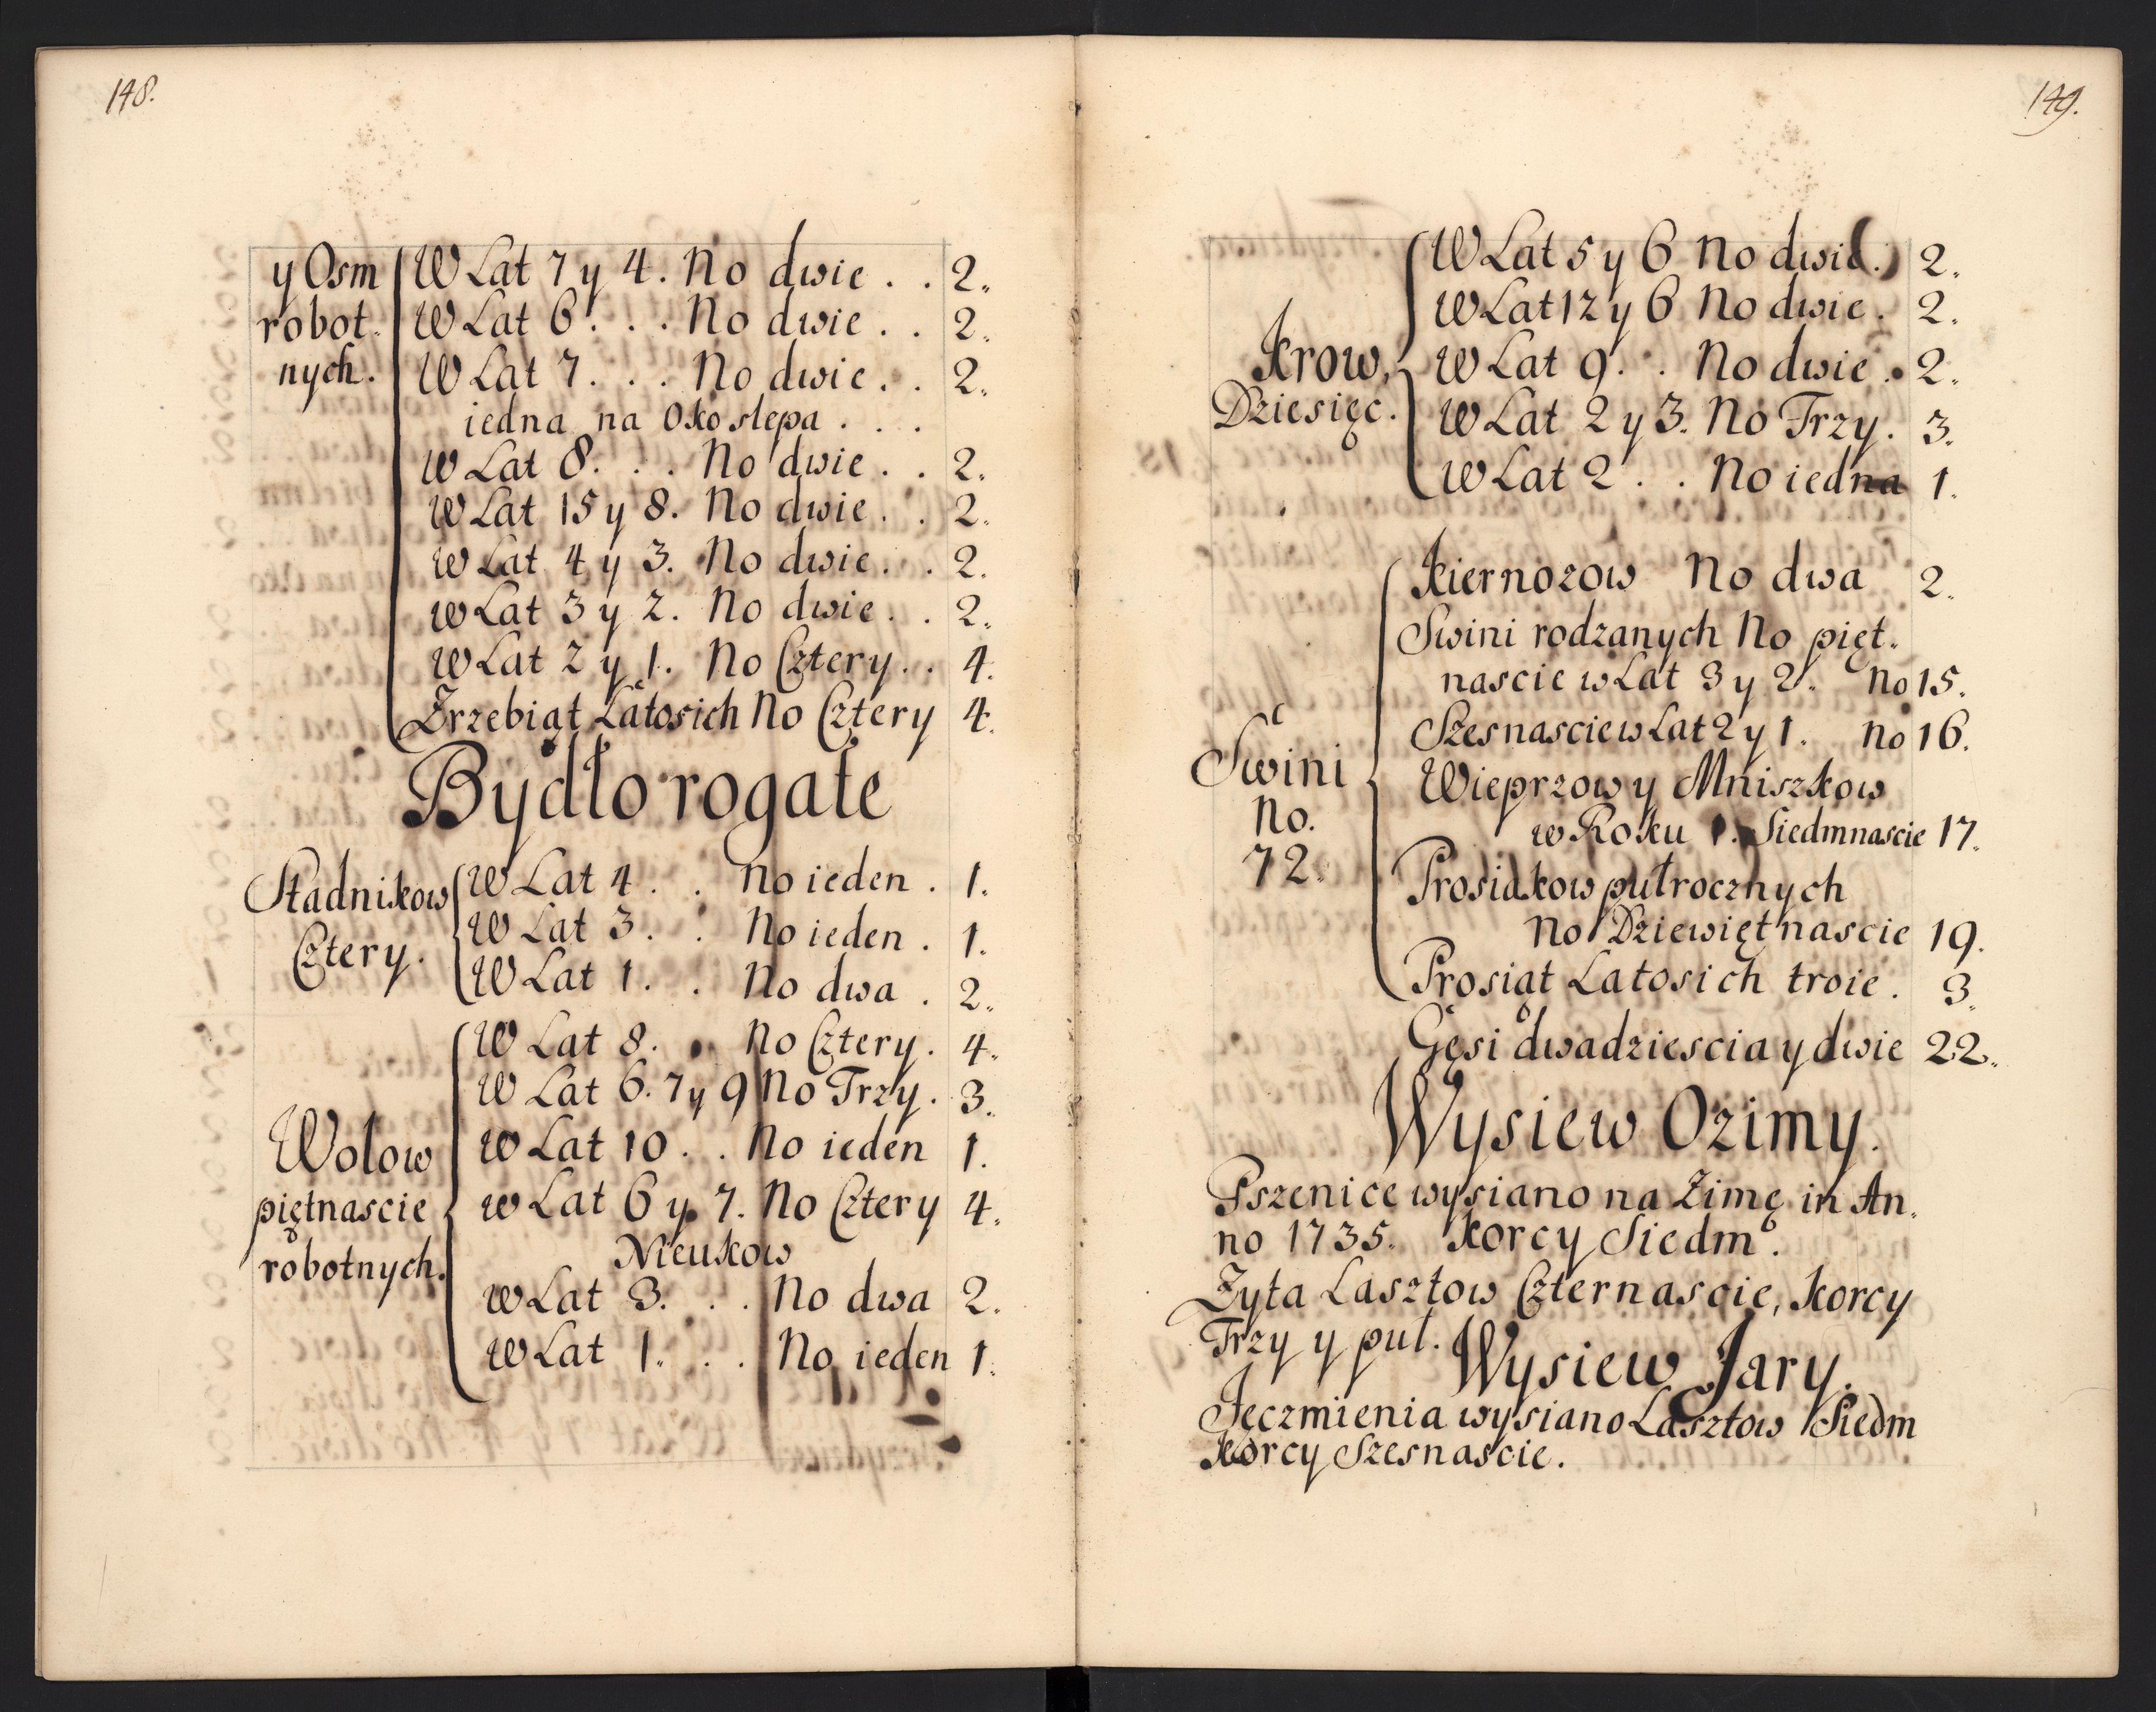 148.
y Osm
robot.
nych.
W Lat 7 y 4. No dwie . . 2.
W Lat 6 . . . No dwie . . 2.
W Lat 7. . . No dwie . . 2.
iedna na Oko slepa . . .
W Lat 8. . . No dwie . . 2.
W Lat 15 y 8. No dwie . . 2.
W Lat 4 y 3. No dwie . . 2.
w Lat 3 y 2. No dwie . . 2.
W Lat 2 y 1. No Cztery . . 4.
Zrzebiąt Latosich No Cztery 4.
Bydło rogate
Stadnikow
Cztery.
W Lat 4 . . No ieden . 1.
W Lat 3 . . No ieden . 1.
W Lat 1 . . No dwa . 2.
Wolow
piętnascie
robotnych.
W Lat 8. . No Cztery. 4.
W Lat 6. 7 y 9 No Trzy. 3.
W Lat 10 . . No ieden 1.
w Lat 6 y 7. No Cztery 4.
Nieukow
w Lat 3. . . No dwa 2.
W Lat 1. . . No ieden 1.
149.
Krow,
Dziesięc.
W Lat 5 y 6 No dwie. 2.
W Lat 12 y 6 No dwie. 2.
W Lat 9. . No dwie . 2.
W Lat 2 y 3. No Trzy. 3.
W Lat 2 . . No iedna 1.
Swini
No.
72.
Kiernozow No dwa 2.
Swini rodzanych No pięt.
nascie w Lat 3 y 2. No 15.
Szesnascie w Lat 2 y 1. No 16.
Wieprzow y Mniszkow
w Roku 1. Siedmnascie 17.
Prosiakow pułrocznych
No Dziewiętnascie 19.
Prosiąt Latosich troie. 3.
Gęsi dwadziescia y dwie 22.
Wysiew Ozimy.
Pszenice wysiano na Zimę in An.
no 1735. Korcy Siedm.
Zyta Lasztow Czternascie, Korcy
Trzy y puł.
Wysiew Jary.
Jęczmienia wysiano Lasztow Siedm
Korcy Szesnascie.